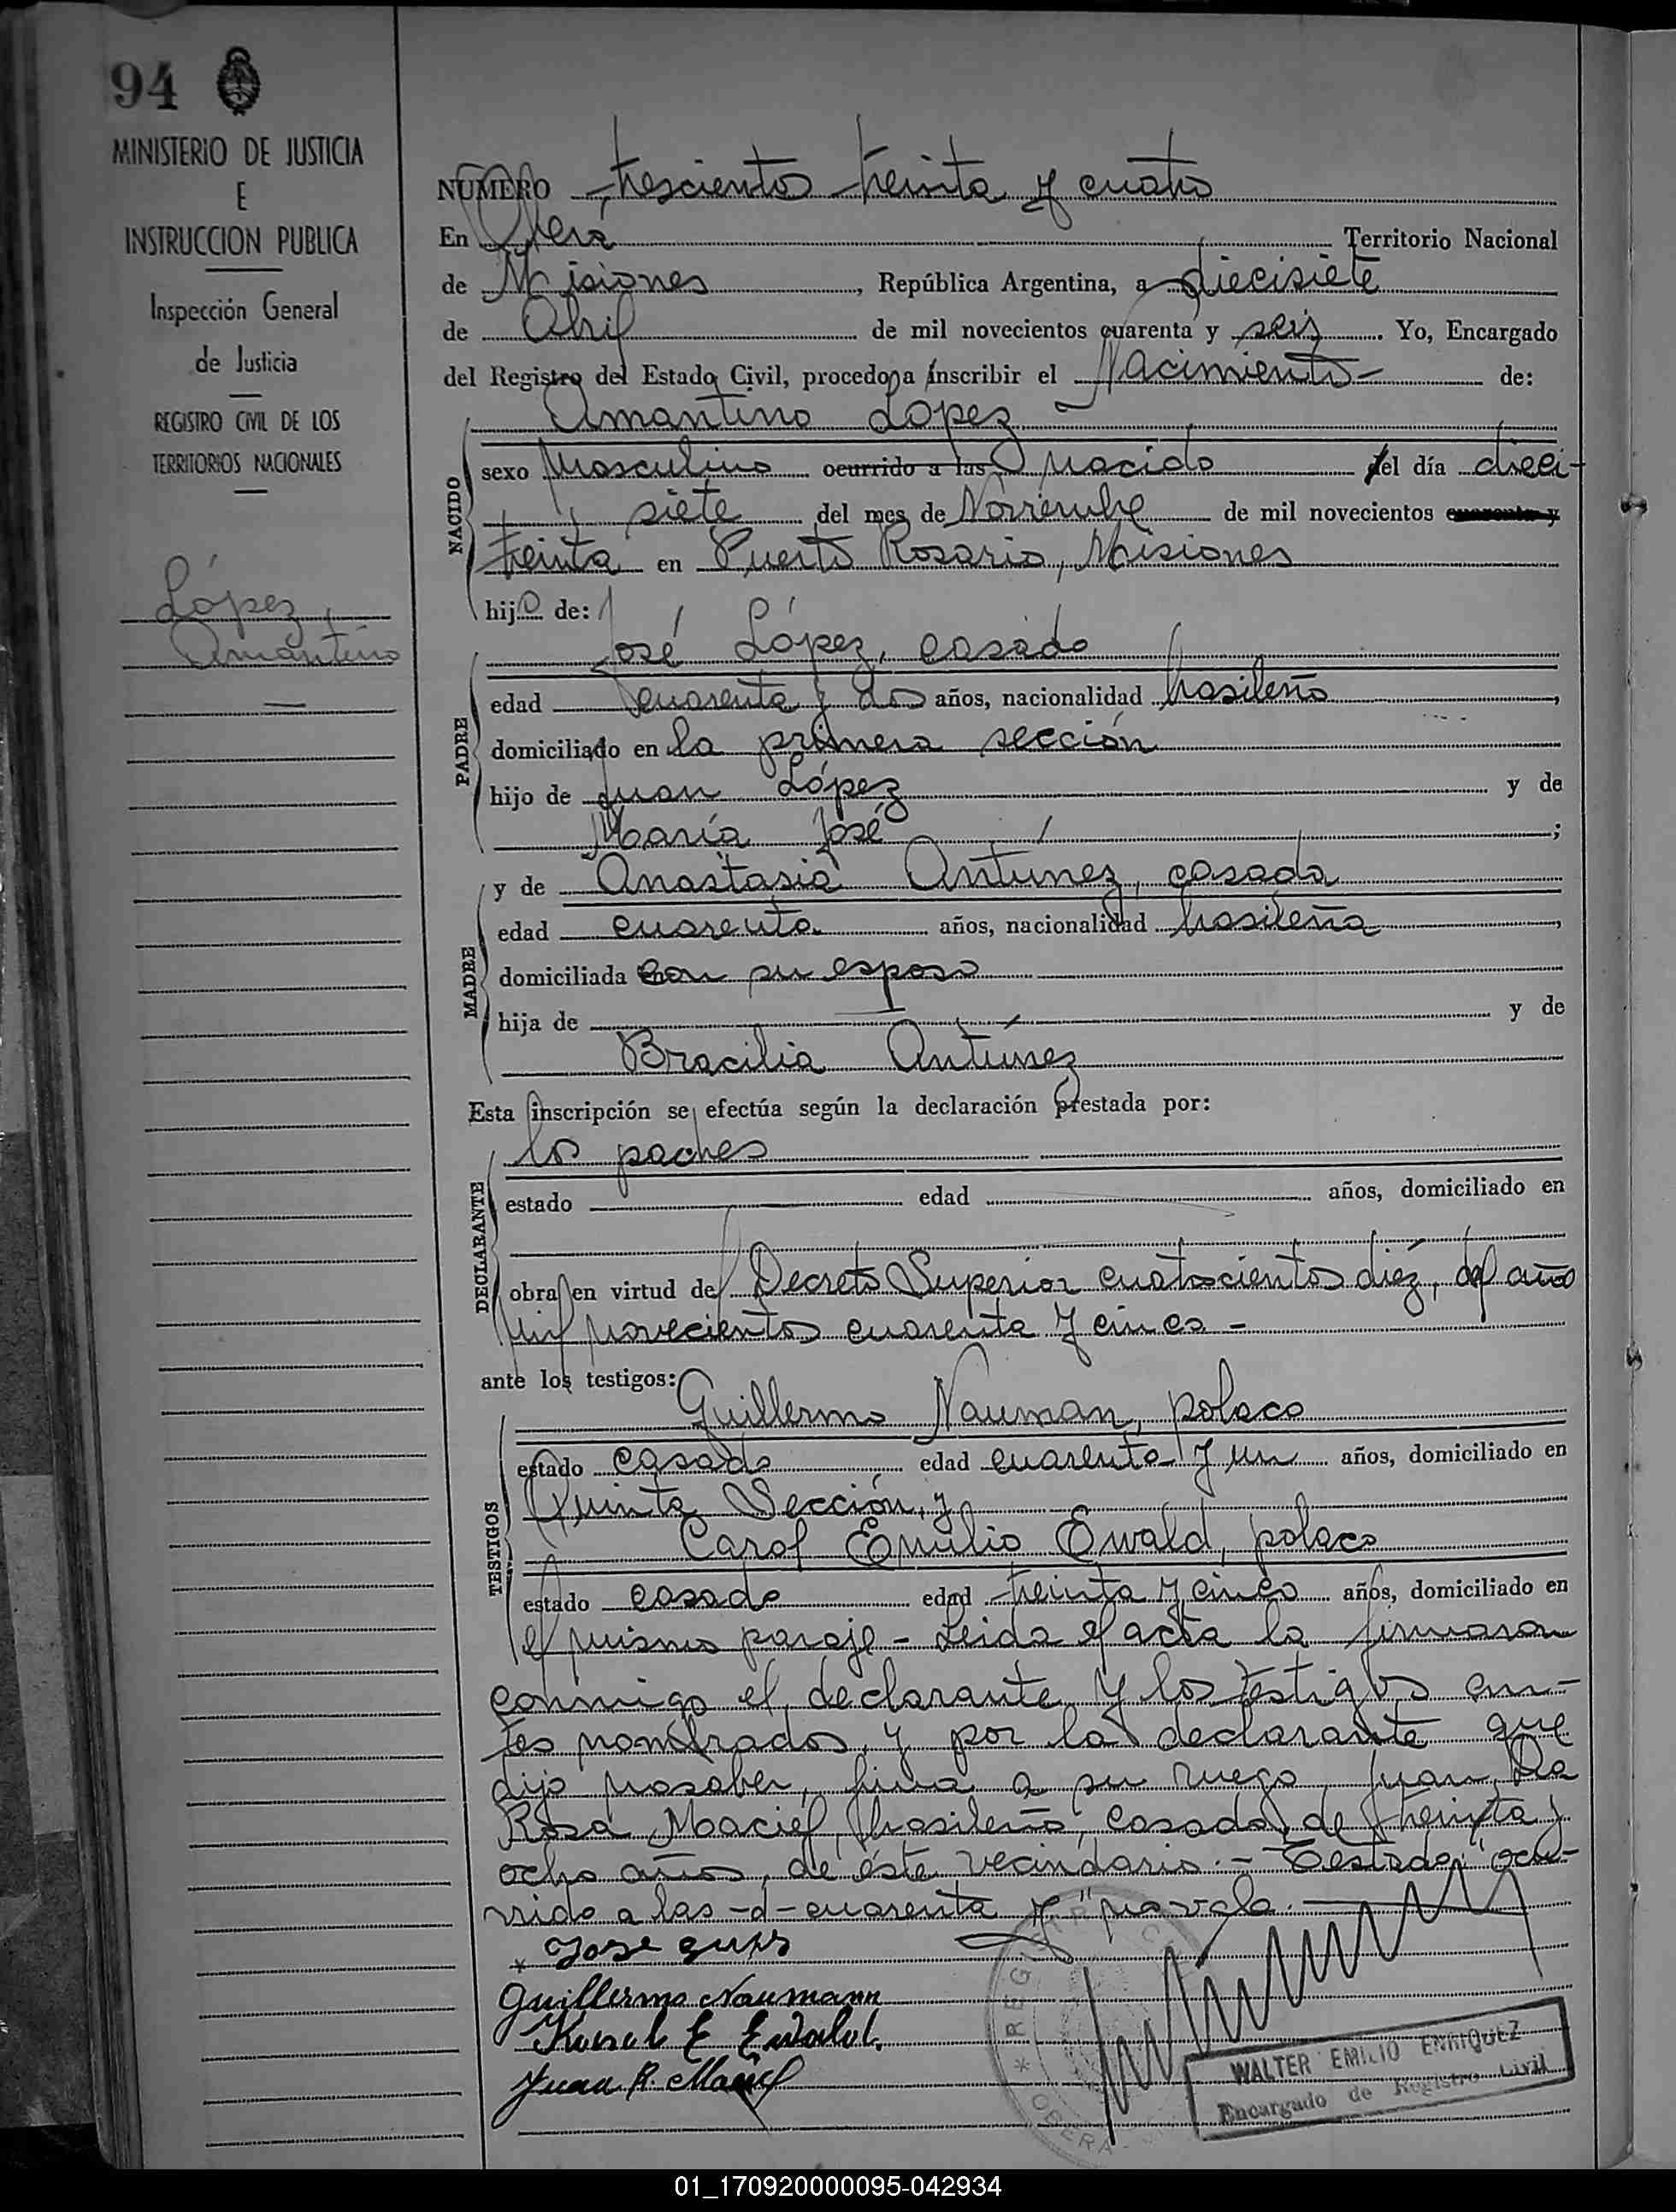 94
MINISTERIO DE JUSTICIA
E
INSTRUCCION PUBLICA
Inspección General
de Justicia
REGISTRO CIVIL DE LOS
TERRITORIOS NACIONALES
López,
Amantino
NUMERO trescientos treinta y cuatro
En Oberá Territorio Nacional
de Misiones, República Argentina, a diecisiete
de Abril de mil novecientos cuarenta y seis. Yo, Encargado
del Registro del Estado Civil, procedo a inscribir el Nacimiento - de:
Amantino López
NACIDO
sexo Masculino ocurrido a las nacido el día dieci-
siete del mes de Noviembre de mil novecientos cuarenta y
treinta en Puerto Rosario, Misiones
hijo de:
José López, casado
PADRE
edad cuarenta y dos años, nacionalidad brasileño,
domiciliado en la primera sección
hijo de Juan López y de
María José ;
MADRE
y de Anastasia Antúnez, casada
edad cuarenta años, nacionalidad brasileña,
domiciliada con su esposo
hija de y de
Bracilia Antúnez
Esta inscripción se efectúa según la declaración prestada por:
DECLARANTE
los padres
estado edad años, domiciliado en
obra en virtud del Decreto Superior cuatrocientos diéz, del año
mil novecientos cuarenta y cinco -
ante los testigos:
TESTIGOS
Guillermo Nauman, polaco
estado casado edad cuarenta y un años, domiciliado en
Quinta Sección, y
Carol Emilio Ewald, polaco
estado casado edad treinta y cinco años, domiciliado en
el mismo paraje - Leida el acta la firmaron
conmigo el declarante y los testigos an-
tes nombrados, y por la declarante que
dijo no saber, firma a su ruego, Juan Da
Rosa Maciel, brasileño, casado, de treinta y
ocho años, de éste vecindario. - Testado: "ocu-
rrido a las -d- cuarenta y" no vale.
Guillermo Naumann
Karol E Ewald.
Juan R. Maciel
REGISTRO CIVIL
* OBERA -
WALTER EMILIO ENRIQUEZ
Encargado de Registro Civil
01_170920000095-042934